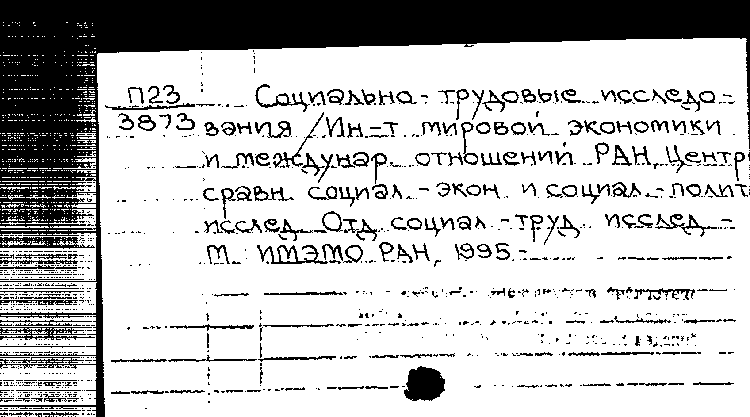 П23 Социально-трудовые исследо-
3873 вания /Ин-т мировой экономики
и междунар. отношений РАН, Центр
сравн. социал.-экон. и социал.-полит
исслед. Отд. социал.-труд. исслед.-
М. ИМЭМО РАН, 1995.-